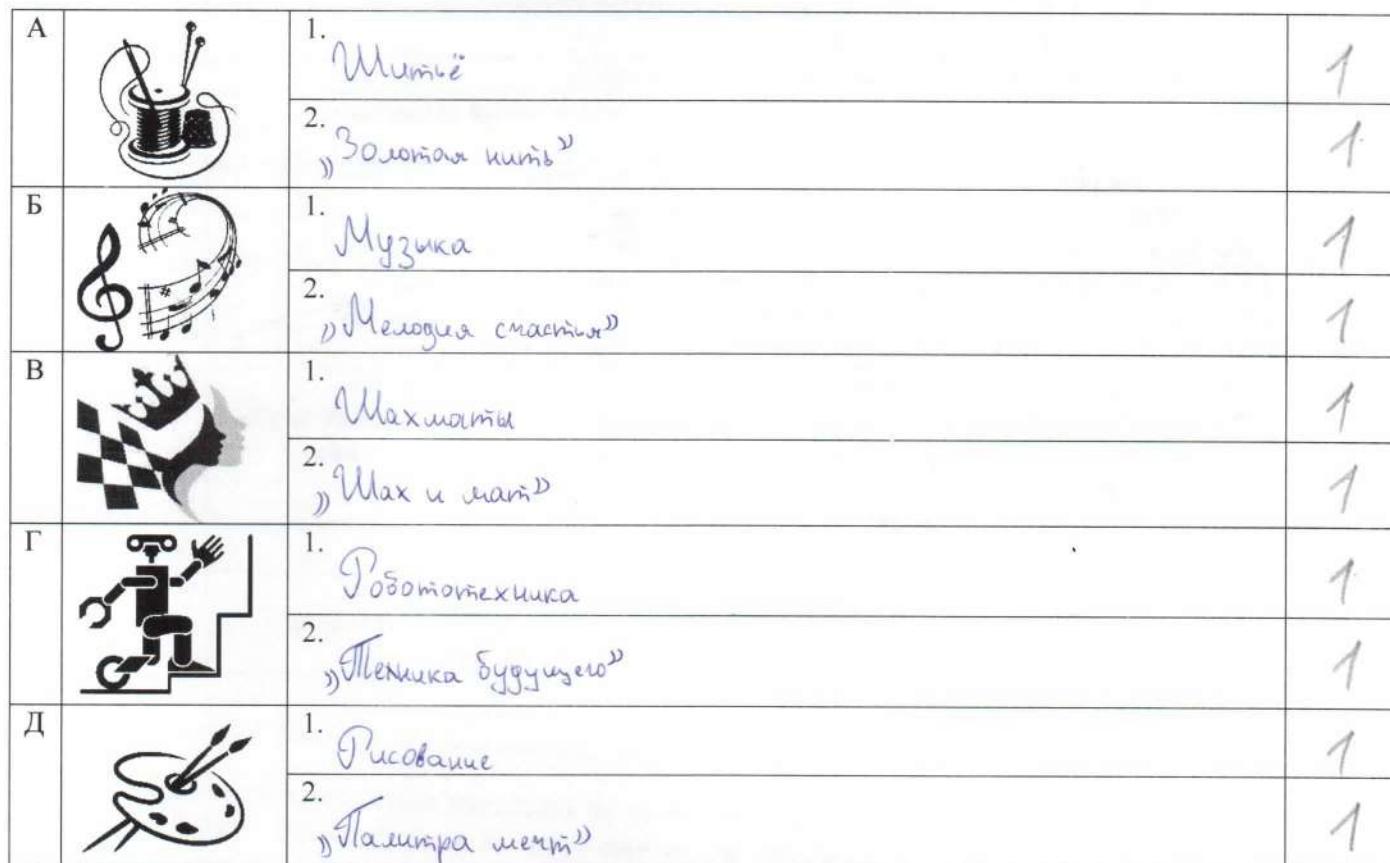 А
1.
Шитьё
1
2.
„Золотая нить”
1
Б
1.
Музыка
1
2.
„Мелодия счастья”
1
В
1.
Шахматы
1
2.
„Шах и мат”
1
Г
1.
Робототехника
1
2.
„Техника будущего”
1
Д
1.
Рисование
1
2.
„Палитра мечт”
1